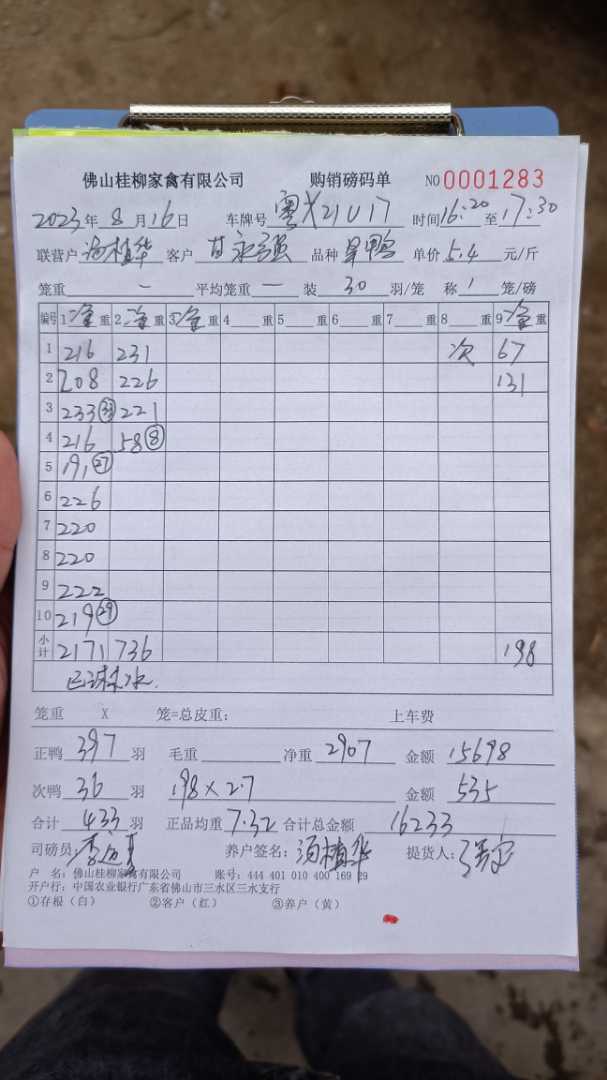 佛山桂柳家禽有限公司 购销磅码单 NO 0001283
2023年8月16日 车牌号 粤X21U17 时间16:20至17:30
联营户 汤植华 客户 甘永强 品种 旱鸭 单价 5.4 元/斤
笼重 - 平均笼重 一 装 30 羽/笼 称 1 笼/磅
编号 1 净重 2 净重 3 净重 4 重 5 重 6 重 7 重 8 重 9 净重
1 216 231 次 67
2 208 226 131
3 233 (33) 221
4 216 58 (8)
5 191 (27)
6 226
7 220
8 220
9 222
10 219 (29)
小计 2171 736 198
笼重 X 笼=总皮重: 上车费
正鸭 397 羽 毛重 净重 2907 金额 15698
次鸭 36 羽 198×2.7 金额 535
合计 433 羽 正品均重 7.32 合计总金额 16233
司磅员: 养户签名: 汤植华 提货人:
户 名: 佛山桂柳家禽有限公司 账号: 444 401 010 400 169 29
开户行: 中国农业银行广东省佛山市三水区三水支行
①存根(白) ②客户(红) ③养户(黄)